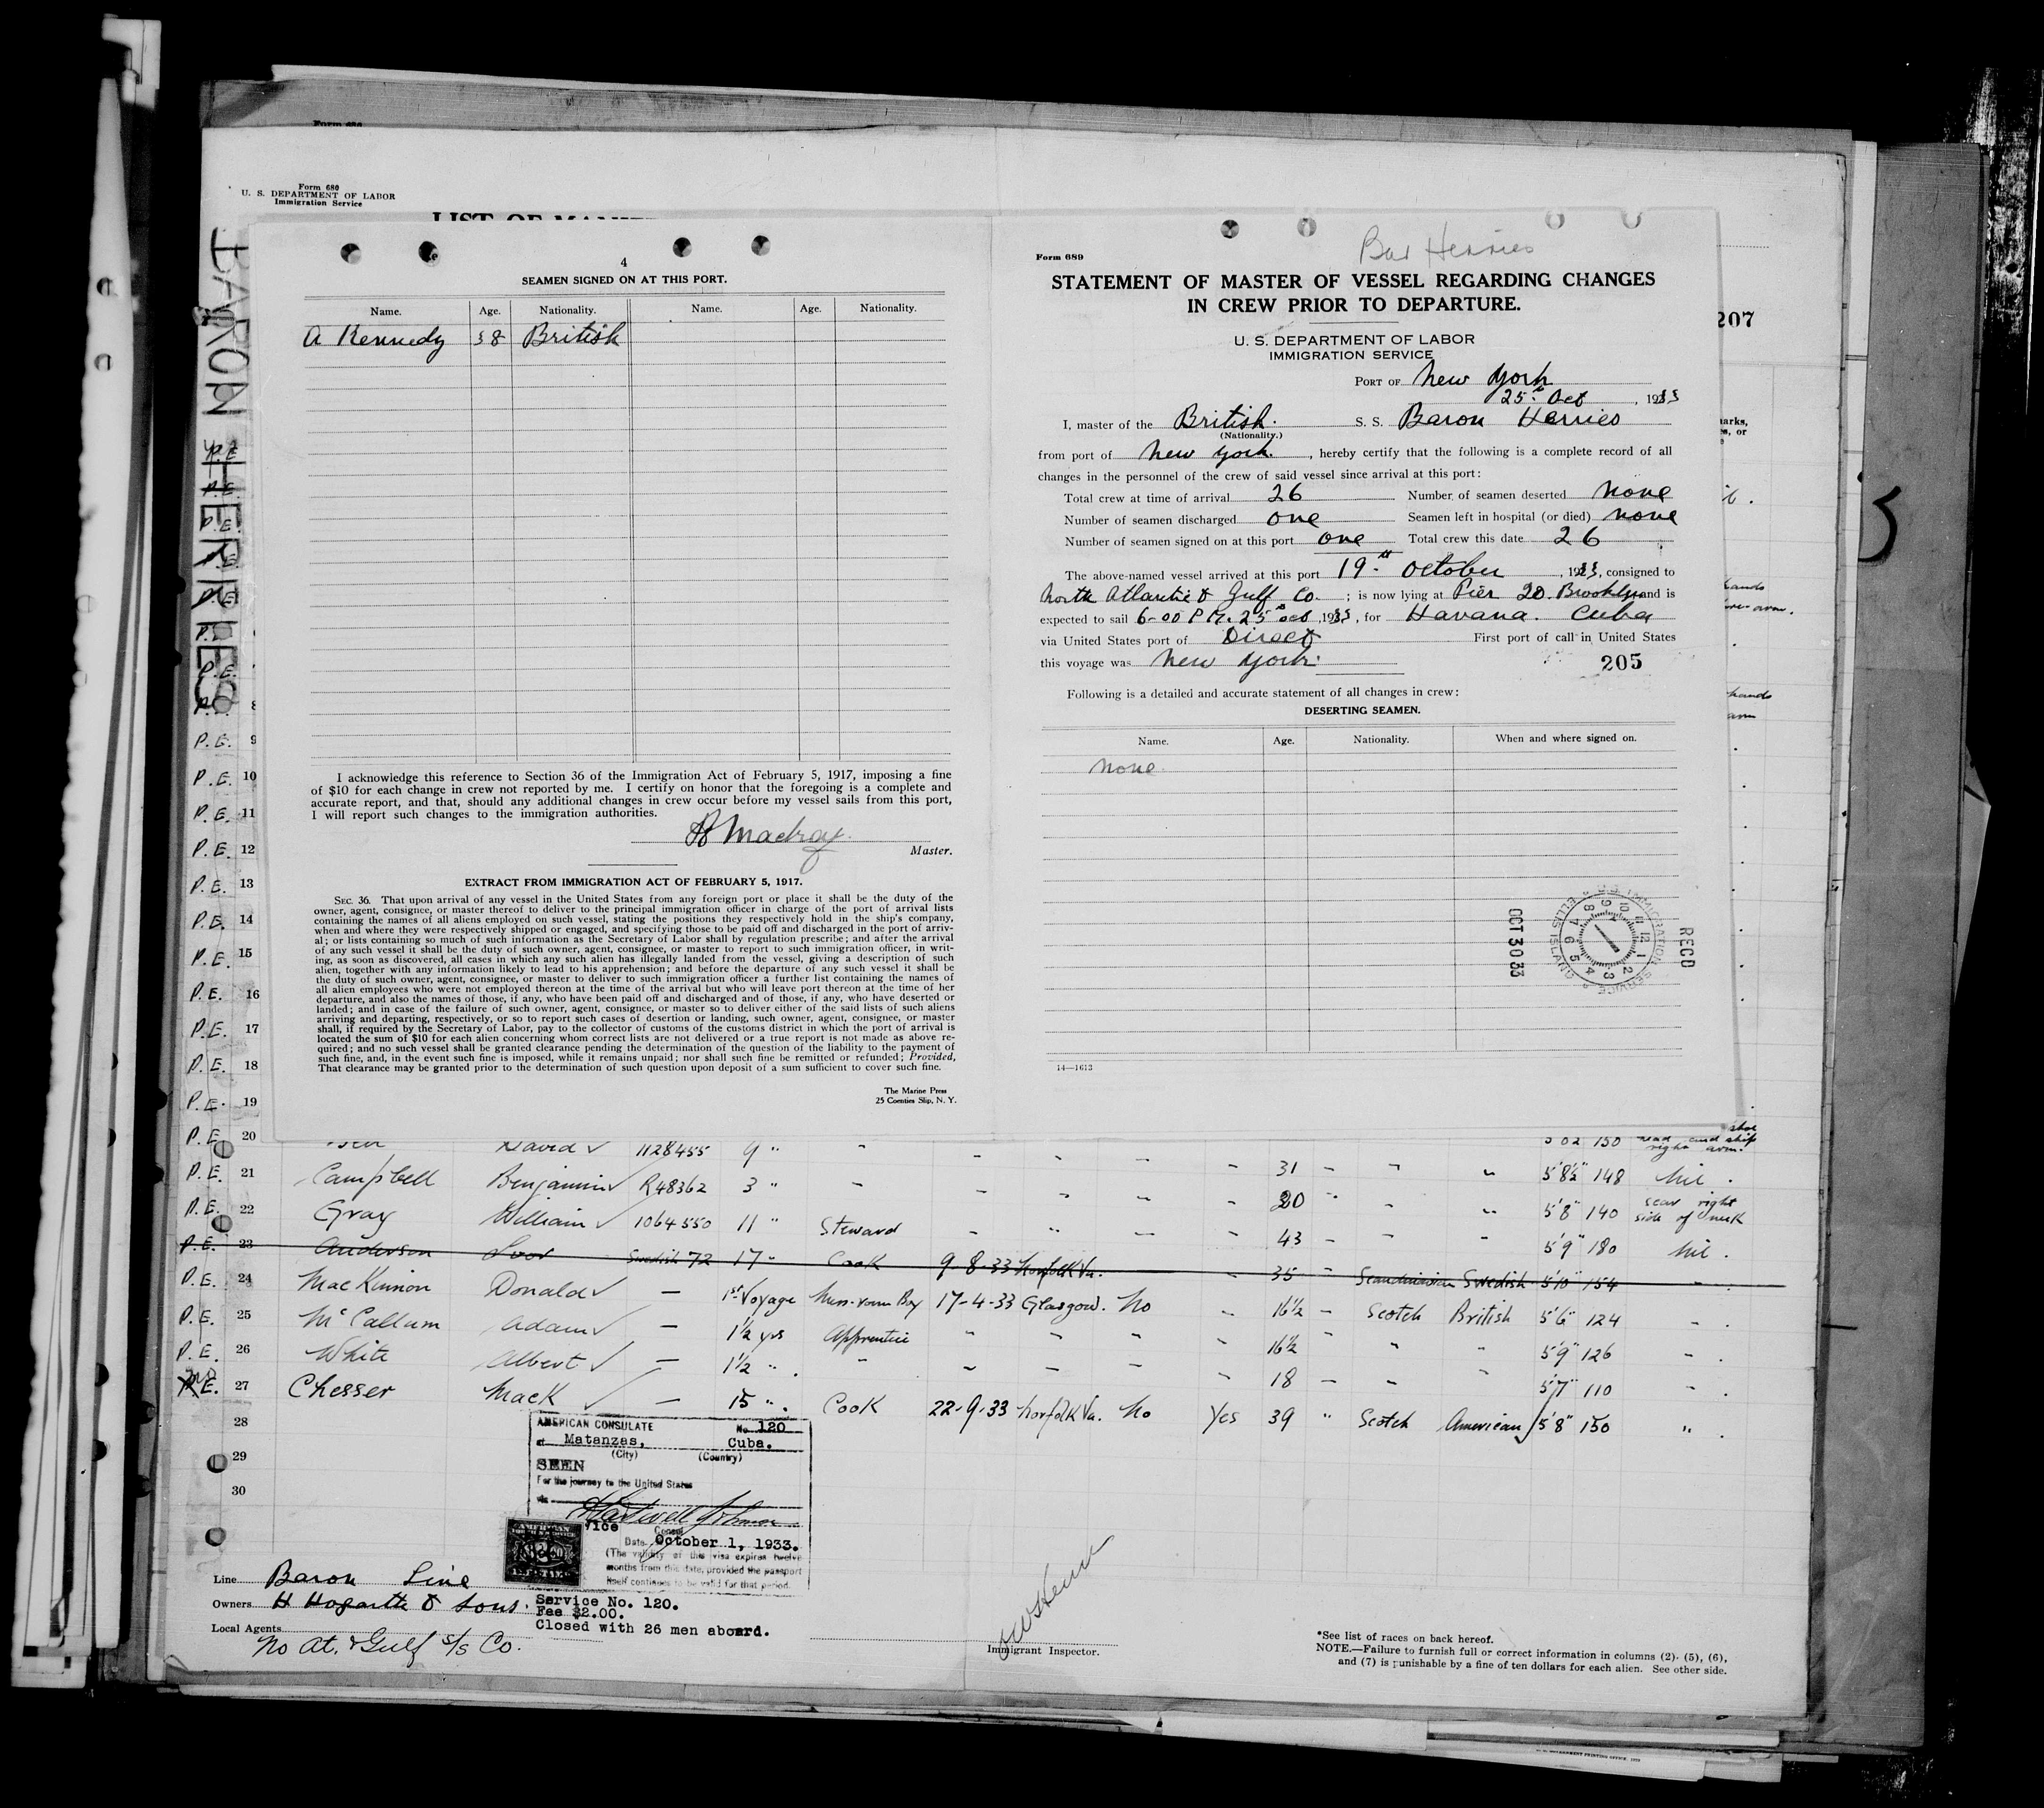 Form 680
U. S. DEPARTMENT OF LABOR
Immigration Service
BARON HERRIES
4
SEAMEN SIGNED ON AT THIS PORT.
Name. Age. Nationality. Name. Age. Nationality.
A Kennedy 38 British
I acknowledge this reference to Section 36 of the Immigration Act of February 5, 1917, imposing a fine
of $10 for each change in crew not reported by me. I certify on honor that the foregoing is a complete and
accurate report, and that, should any additional changes in crew occur before my vessel sails from this port,
I will report such changes to the immigration authorities.
Master.
EXTRACT FROM IMMIGRATION ACT OF FEBRUARY 5, 1917.
SEC. 36. That upon arrival of any vessel in the United States from any foreign port or place it shall be the duty of the
owner, agent, consignee, or master thereof to deliver to the principal immigration officer in charge of the port of arrival lists
containing the names of all aliens employed on such vessel, stating the positions they respectively hold in the ship's company,
when and where they were respectively shipped or engaged, and specifying those to be paid off and discharged in the port of arriv-
al; or lists containing so much of such information as the Secretary of Labor shall by regulation prescribe; and after the arrival
of any such vessel it shall be the duty of such owner, agent, consignee, or master to report to such immigration officer, in writ-
ing, as soon as discovered, all cases in which any such alien has illegally landed from the vessel, giving a description of such
alien, together with any information likely to lead to his apprehension; and before the departure of any such vessel it shall be
the duty of such owner, agent, consignee, or master to deliver to such immigration officer a further list containing the names of
all alien employees who were not employed thereon at the time of the arrival but who will leave port thereon at the time of her
departure, and also the names of those, if any, who have been paid off and discharged and of those, if any, who have deserted or
landed; and in case of the failure of such owner, agent, consignee, or master so to deliver either of the said lists of such aliens
arriving and departing, respectively, or so to report such cases of desertion or landing, such owner, agent, consignee, or master
shall, if required by the Secretary of Labor, pay to the collector of customs of the customs district in which the port of arrival is
located the sum of $10 for each alien concerning whom correct lists are not delivered or a true report is not made as above re-
quired; and no such vessel shall be granted clearance pending the determination of the question of the liability to the payment of
such fine, and, in the event such fine is imposed, while it remains unpaid; nor shall such fine be remitted or refunded; Provided,
That clearance may be granted prior to the determination of such question upon deposit of a sum sufficient to cover such fine.
The Marine Press
25 Coenties Slip, N. Y.
Bar Herries
Form 689
STATEMENT OF MASTER OF VESSEL REGARDING CHANGES
IN CREW PRIOR TO DEPARTURE.
U. S. DEPARTMENT OF LABOR
IMMIGRATION SERVICE
PORT OF New York
25th Oct, 1933
I, master of the British. S. S. Baron Herries
(Nationality.)
from port of New York., hereby certify that the following is a complete record of all
changes in the personnel of the crew of said vessel since arrival at this port:
Total crew at time of arrival 26 Number of seamen deserted None
Number of seamen discharged one Seamen left in hospital (or died) none
Number of seamen signed on at this port one Total crew this date 26
The above-named vessel arrived at this port 19th October, 1933, consigned to
North Atlantic & Gulf Co.; is now lying at Pier 20. Brooklyn and is
expected to sail 6-00 P M. 25th Oct, 1933, for Havana. Cuba
via United States port of Direct First port of call in United States
this voyage was New York.
205
Following is a detailed and accurate statement of all changes in crew:
DESERTING SEAMEN.
Name. Age. Nationality. When and where signed on.
None
OCT 30 33
U.S. IMMIGRATION SERVICE ELLIS ISLAND
RECD
14—1613
207
P.E. 9
P.E. 10
P.E. 11
P.E. 12
P.E. 13
P.E. 14
P.E. 15
P.E. 16
P.E. 17
P.E. 18
P.E. 19
P.E. 20 David 1128455 9 " 150 right arm.
P.E. 21 Campbell Benjamin R48362 3 " 31 5'8½" 148 Nil.
P.E. 22 Gray William 1064550 11 " Steward 20 5'8" 140 scar right side of neck
43 5'9" 180 Nil.
P.E. 23 Anderson Ivor Swedish 72 17 " Cook 9-8-33 Norfolk Va. 35 Scandinavian Swedish 5'10" 154
P.E. 24 MacKinnon Donald — 1st Voyage Mess-room Boy 17-4-33 Glasgow. No 16½ Scotch British 5'6" 124
P.E. 25 McCallum Adam — 1½ yrs Apprentice 16½ 5'9" 126
P.E. 26 White Albert — 1½ " 18 5'7" 110
P.E. 27 Chesser Mack — 15 " Cook 22-9-33 Norfolk Va. No Yes 39 " Scotch American 5'8" 150 "
28
29
30
AMERICAN CONSULATE No. 120
at Matanzas, Cuba.
(City) (Country)
SEEN
For the journey to the United States
via
Vice Consul
Date October 1, 1933.
(The validity of this visa expires twelve
months from this date, provided the passport
itself continues to be valid for that period.
Service No. 120.
Fee $2.00.
Closed with 26 men aboard.
Line Baron Line
Owners H Hogarth & Sons.
Local Agents No At. & Gulf S/S Co.
Immigrant Inspector.
*See list of races on back hereof.
NOTE.—Failure to furnish full or correct information in columns (2), (5), (6),
and (7) is punishable by a fine of ten dollars for each alien. See other side.